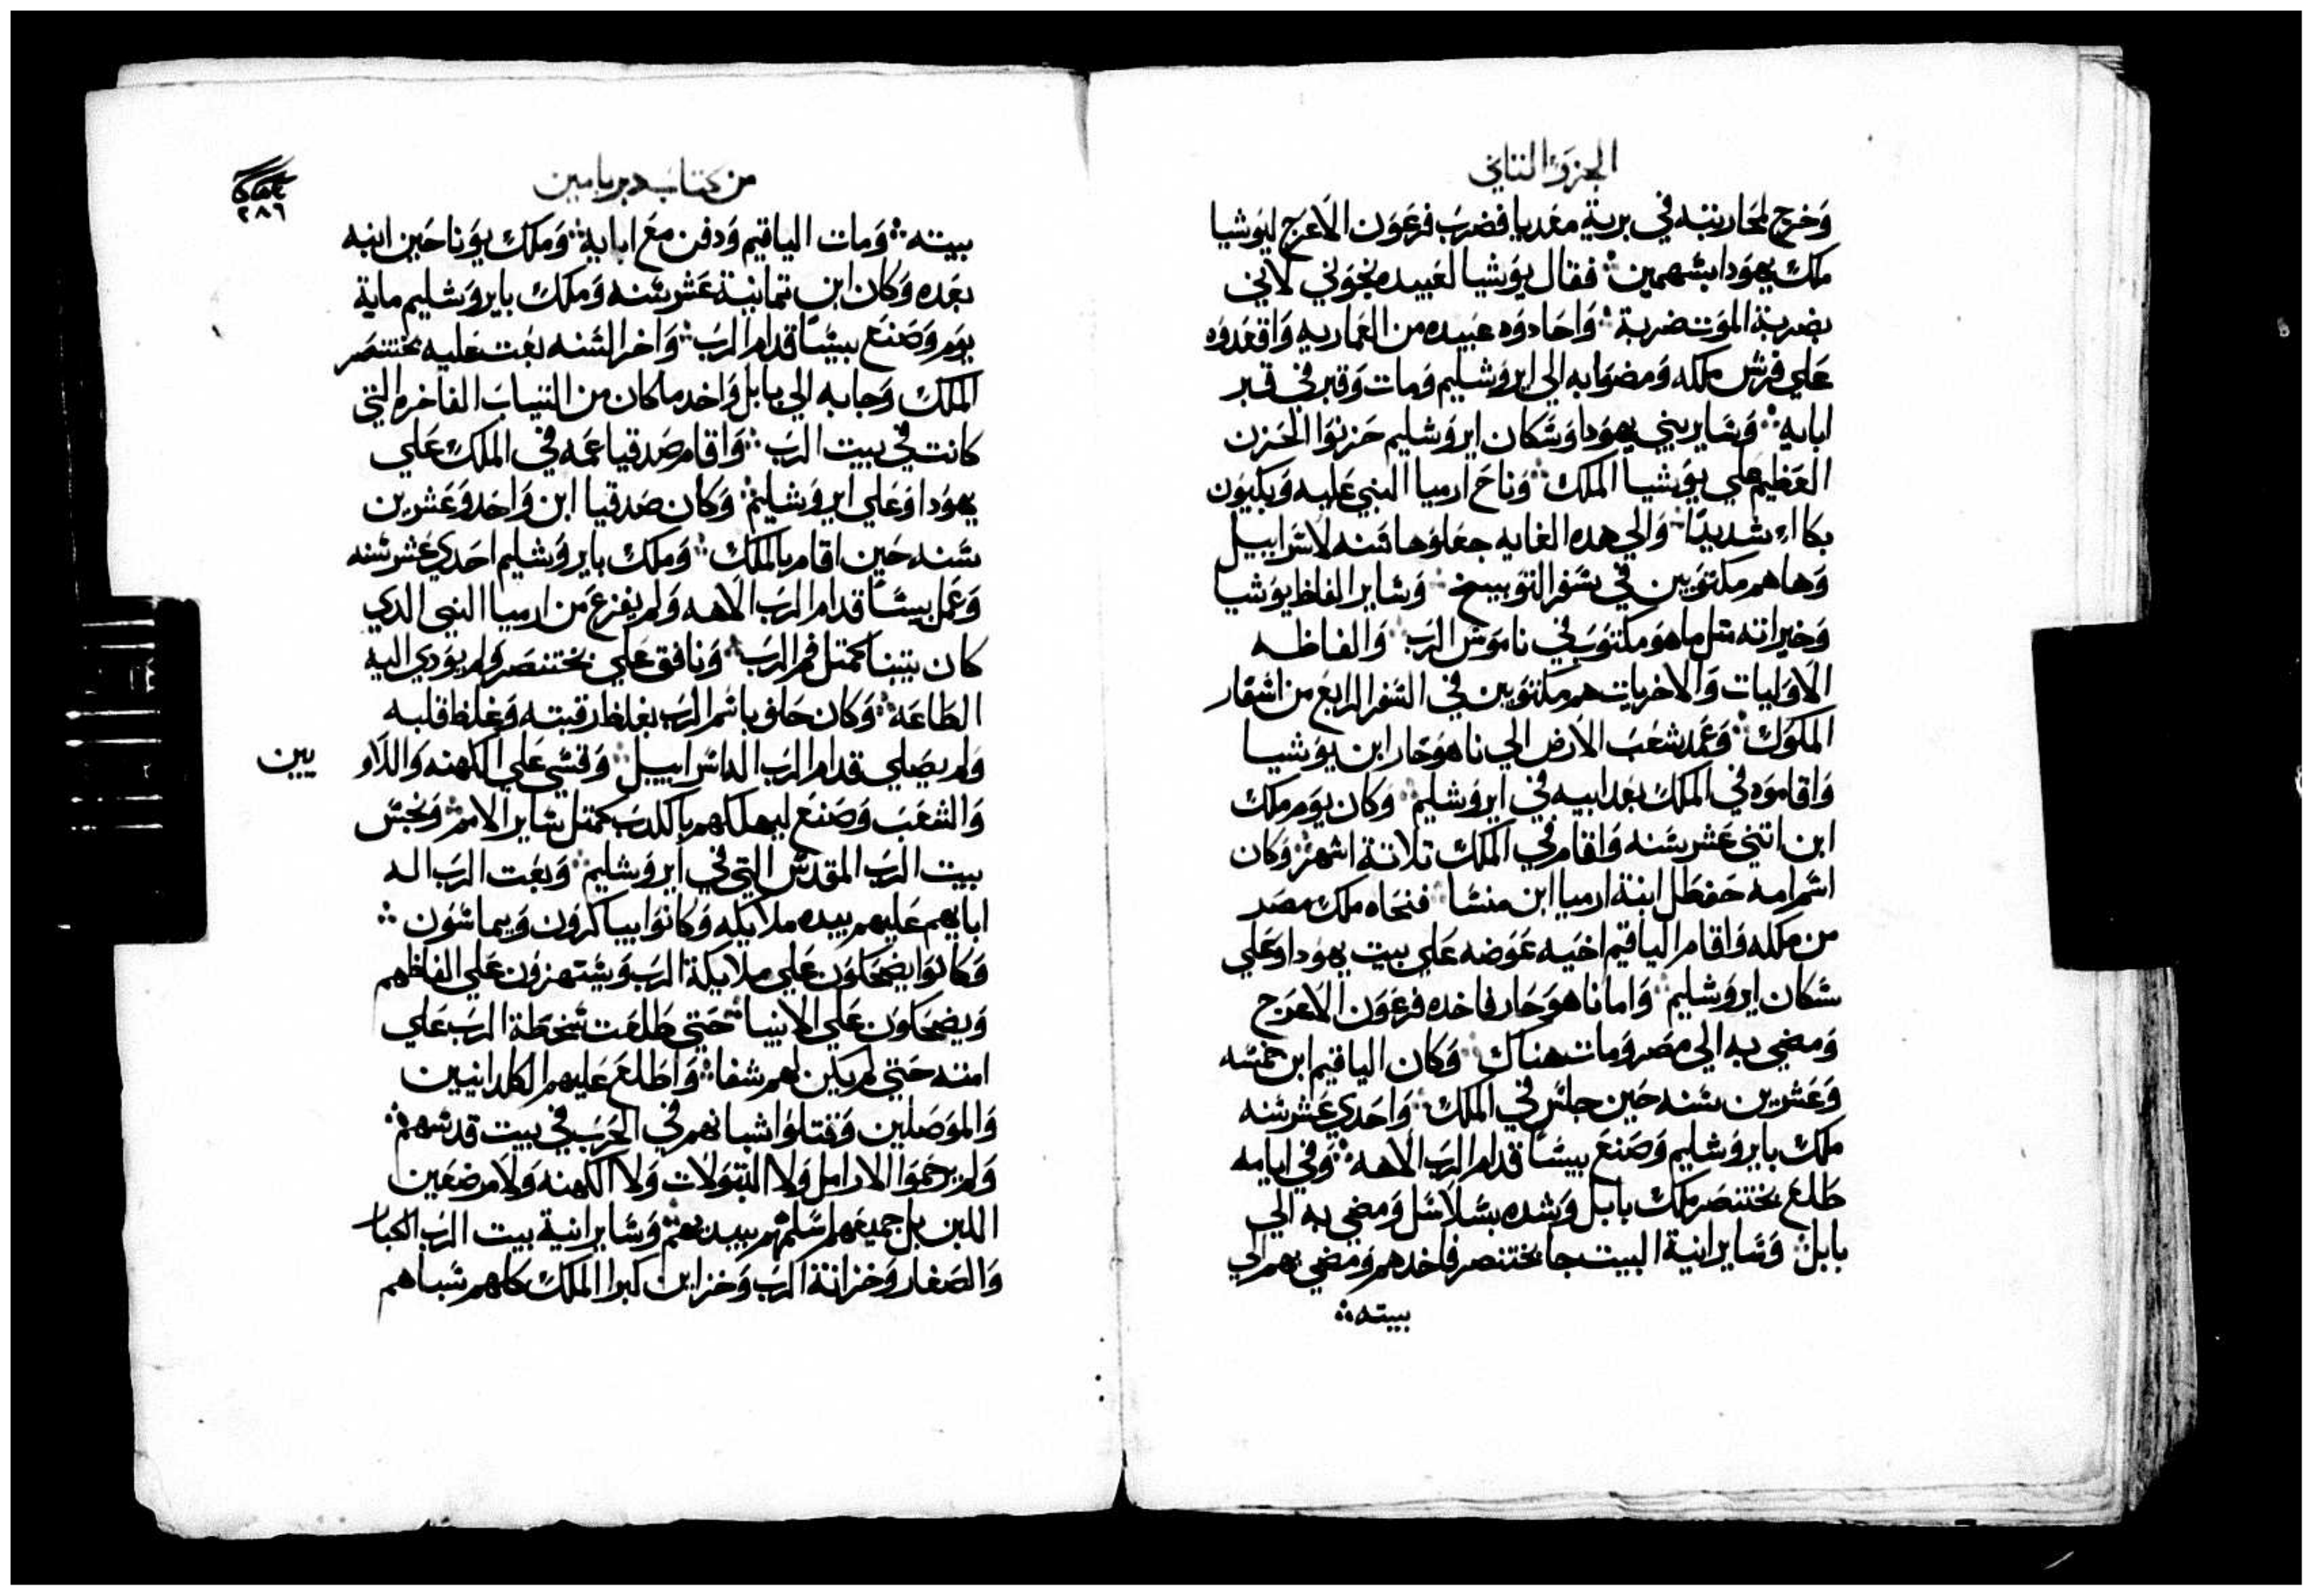 الجزو الثاني
وَخرج لمحاربته في برية مغديا فضرب فرعَوَن الاَعرَج ليوَشيا
ملك يهوَدا بسهمين ܀ فقال يوَشيا لعَبيده نجوَني لاني
بضربة الموَت ضربة ܀ وَاحَادوَه عبيده من العَماريه وَاقعَدوَه
عَلي فرش ملكه وَمضوَا به الي ايروَشليم وَمات وَقبر في قبر
ابايه ܀ وَساير بني يهوَدا وَسكان ايروَشليم حَزنوَا الحَزن
العَظيم عَلي يوَشيا الملك ܀ وَناحَ ارميا النبي عَليه وَيكيوَن
بكااء شديدًا ܀ وَالي هده الغايه جعَلوَها سَنه لاسراييل
وَها هم مكتوَبين في سَفر التوَبيخ ܀ وَساير الفاظ يوَشيا
وَخيراته متل ما هوَ مكتوَب في ناموَس الرب ܀ وَالفاظه
الاوَليات وَالاخريات هم مكتوَبين في السَفر الرابعَ من اسَفار
الملوَك ܀ وَعَمد شعَب الارض الي ناهوَحَار ابن يوَشيا
وَاقاموَه في الملك بعَد ابيه في ايروَشليم ܀ وَكان يوَم ملك
ابن اتني عَشر سَنه وَاقام في الملك تلاتة اشهر ܀ وَكان
اسَم امه حَفطل ابنة ارميا ابن منسَا ܀ فنحَاه ملك مصَر
من ملكه وَاقام الياقيم اخيَه عَوَضه عَلي بيت يهوَدا وَعَلي
سَكان ايروَشليم ܀ وَاما ناهوَحَار فاخده فرعَوَن الاعَرَج
وَمضي به الي مصَر وَمات هناك ܀ وَكان الياقيم ابن خمسَه
وَعَشرين سَنه حَين جلس في الملك ܀ وَاحَدي عَشر سَنه
ملك بايروَشليم وَصَنعَ بيسًَا قدام الرب الاهه ܀ وَفي ايامه
طَلعَ بختنصَر ملك بابل وَشده بسَلاسَل وَمضي به الي
بابل ܀ وَسَاير انية البيت جا بختنصر فاخدهم وَمضي بهم الي
بيته ܀
من كتاب دبريامين
٢٨٦
بيته ܀ وَمات الياقيم وَدفن معَ ابايه ܀ وَملك يوَناحَين ابنه
بعَده وَكان ابن تمانية عَشر سَنه وَملك بايروَشليم ماية
يوَم وَصَنعَ بيسًَا قدام الرَب ܀ وَاخر السَنه بعَت عَليه بختنصَر
الملك وَجابه الي بابل وَاخد ما كان من التياب الفاخره التي
كانت في بيت الرَب ܀ وَاقام صَدقيا عَمه في الملك عَلي
يهوَدا وَعَلي ايروَشليم ܀ وَكان صَدقيا ابن وَاحَد وَعَشرين
سَنه حَين اقام بالملك ܀ وَملك بايروَشليم احَدي عَشر سَنه
وَعَمل بيسًَا قدام الرَب الاهه وَلم يفزعَ من ارميا النبي الدي
كان يتنبا كمتل فم الرَب ܀ وَنافق عَلي بختنصَر وَلم يوَدي اليه
الطَاعَه ܀ وَكان حَلف باسَم الرَب بغلظ رقبته وَغلظ قلبه
وَلم يصَلي قدام الرَب اله اسَراييل ܀ وَقسَي عَلي الكهنه وَاللاَو يين
وَالشعَب وَصَنعَ ليهلكهم بالكدب كمتل سَاير الامم ܀ وَنجسَ
بيت الرَب المقدسَ التي في ايروَشليم ܀ وَبعَت الرَب اله
ابايهم عَليهم بيده ملايكه وَكانوَا يباكروَن وَيماسَوَن ܀
وَكانوَا يضحَكوَن عَلي ملايكة الرَب وَيسَتهزوَن عَلي الفاظهم
وَيضحَكوَن عَلي الانبيا ܀ حَتي طَلعَت سَخطَة الرَب عَلي
امته حَتي لم يكن لهم شفا ܀ وَاطَلعَ عَليهم الكلدانيين
وَالموَصَلين وَقتلوَا شبانهم في الحَرَب في بيت قدسَهم ܀
وَلم يرحَموَا الارامل وَلا البتوَلات وَلا الكهنه وَلا مرضعَين
اللبن بل جميعَهم اسَلمهم بيديهم ܀ وَسَاير انية بيت الرَب الكبار
وَالصَغار وَخزانة الرَب وَخزاين كبرا الملك كلهم سَباهم